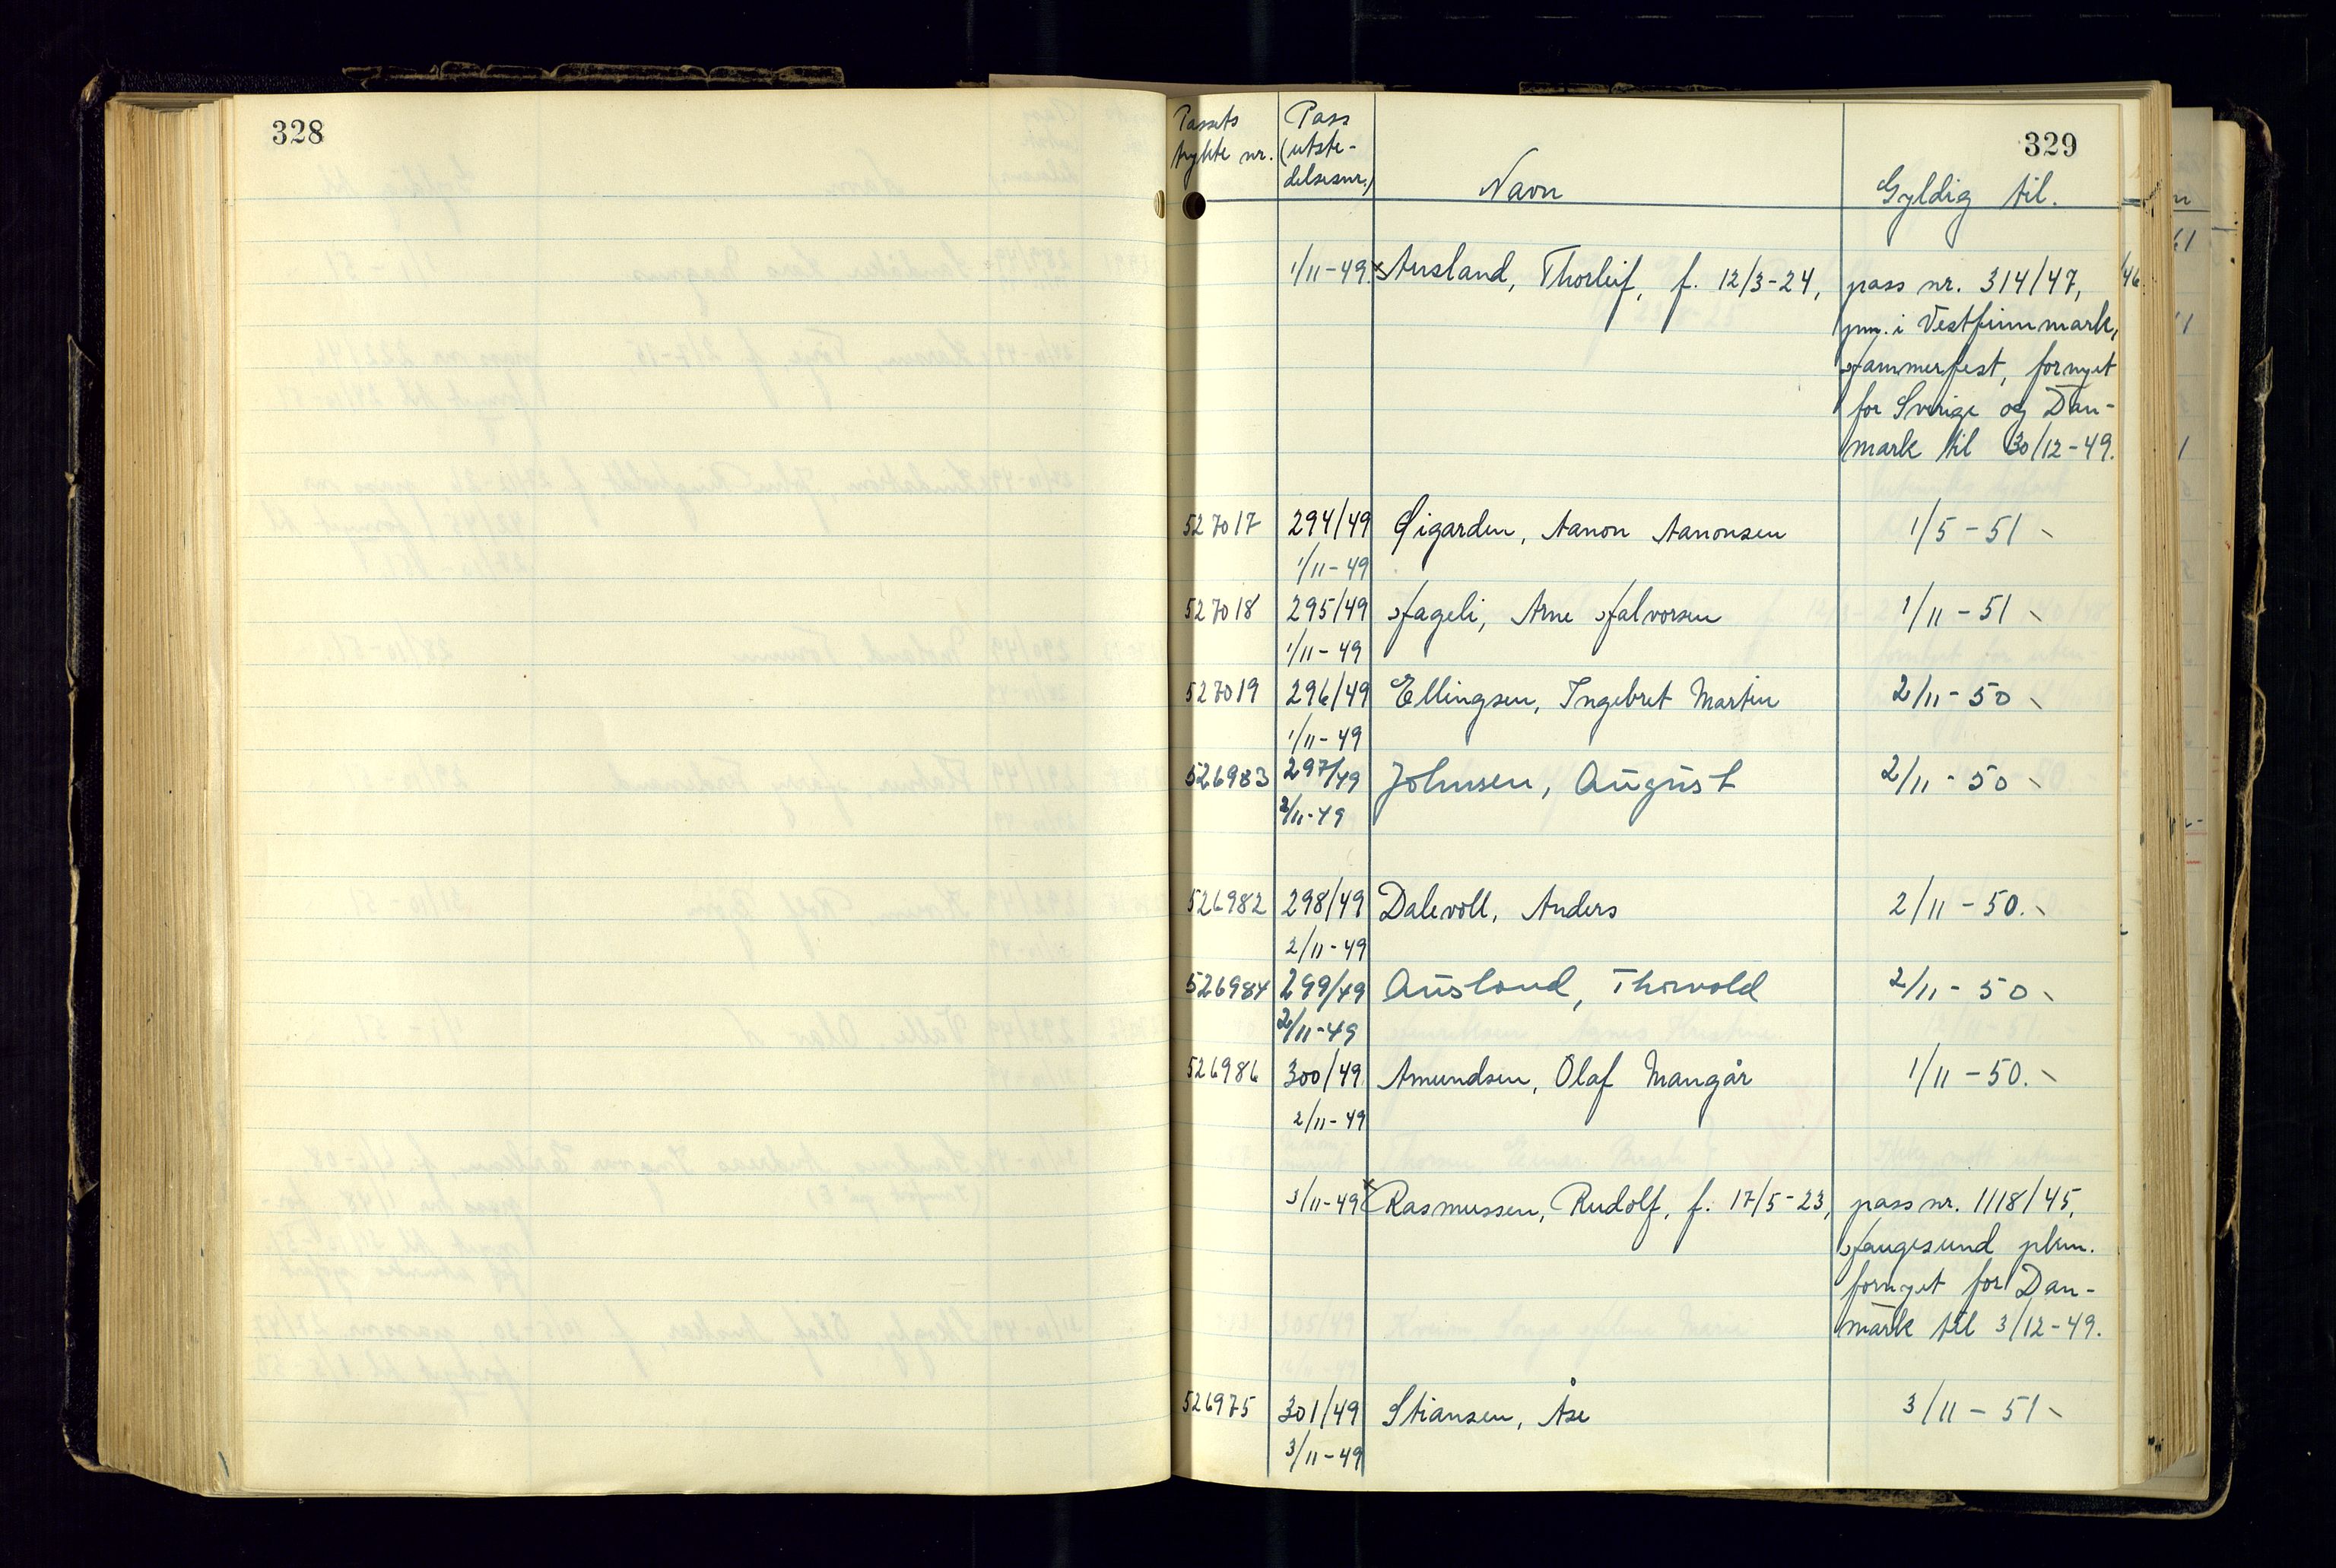 328
329
Passets Pass
trykte nr. (utste-
delsesnr.)
Navn Gyldig til.
1/11-49. x Ausland, Thorleif, f. 12/3-24, pass nr. 314/47,
pm. i Vestfinnmark,
Hammerfest, fornyet
for Sverige og Dan-
mark til 30/12-49.
527017 294/49 Øigarden, Aanon Aanonsen 1/5-51
1/11-49
527018 295/49 Hageli, Arne Halvorsen 1/11-51
1/11-49
527019 296/49 Ellingsen, Ingebret Martin 2/11-50
1/11-49
526983 297/49 Johnsen, August 2/11-50
2/11-49
526982 298/49 Dalevoll, Anders 2/11-50.
2/11-49
526984 299/49 Ausland, Thorvald 2/11-50
2/11-49
526986 300/49 Amundsen, Olaf Mangår 1/11-50.
2/11-49
3/11-49 x Rasmussen, Rudolf, f. 17/5-23, pass nr. 1118/45,
Haugesund pkm.
fornyet for Dan-
mark til 3/12-49.
526975 301/49 Stiansen, Åse 3/11-51
3/11-49